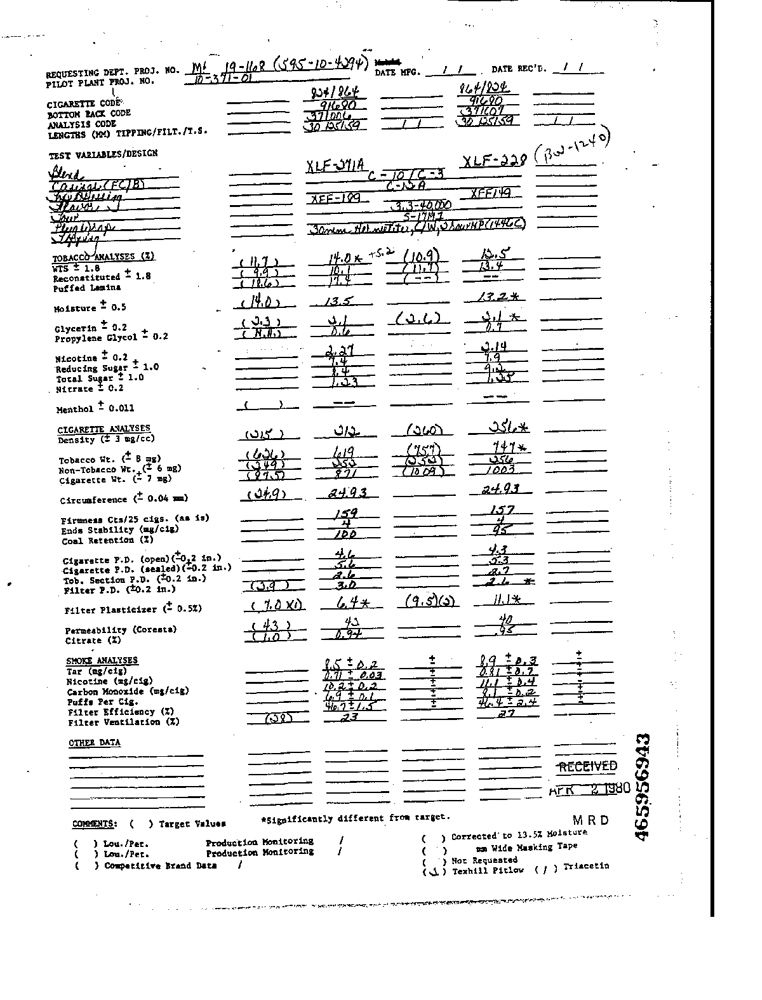 REQUESTING DEPT. PROJ. NO. 19-168 (595-10-4294) DATE MFG. / / DATE REC'D. / /
PILOT PLANT PROJ. NO. 10-371-01
CIGARETTE CODE 834/864 864/834
BOTTOM BACK CODE 91680 91680
ANALYSIS CODE 371606 371607
LENGTHS (MM) TIPPING/FILT./T.S. / / / /
TEST VARIABLES/DESIGN
Blend XLF-271A XLF-228 (BW-1240)
Casings (FC/B) C-10/C-3
C-12A
Flavor XFF-189 XFF149
3.3-40,000
Plugwrap
Tipping
TOBACCO ANALYSES (%)
WTS ± 1.8 (11.7) 14.0* +5.2 (10.9) 12.5
Reconstituted ± 1.8 (9.9) 10.1 (11.7) 13.4
Puffed Lamina (18.6) 17.4 (--) --
Moisture ± 0.5 (14.0) 13.5 13.2*
Glycerin ± 0.2 (2.3) 2.1 (2.6) 2.1*
Propylene Glycol ± 0.2 (N.A.) 0.6 0.7
Nicotine ± 0.2 2.27 2.14
Reducing Sugar ± 1.0 7.4 7.9
Total Sugar ± 1.0 8.4 9.2
Nitrate ± 0.2 1.23 1.25
Menthol ± 0.011 ( ) -- --
CIGARETTE ANALYSES
Density (± 3 mg/cc) (215) 212 (260) 256*
Tobacco Wt. (± 8 mg) (626) 619 (757) 747*
Non-Tobacco Wt. (± 6 mg) (249) 252 (252) 256
Cigarette Wt. (± 7 mg) (875) 871 (1009) 1003
Circumference (± 0.04 mm) (24.9) 24.93 24.93
Firmness Cts/25 cigs. (as is) 159 157
Ends Stability (mg/cig) 4 4
Coal Retention (%) 100 95
Cigarette P.D. (open)(±0.2 in.) 4.6 4.3
Cigarette P.D. (sealed)(±0.2 in.) 5.6 5.3
Tob. Section P.D. (±0.2 in.) 2.6 2.7
Filter P.D. (±0.2 in.) (2.9) 3.0 2.6 *
Filter Plasticizer (± 0.5%) (7.0)(1) 6.4* (9.5)(2) 11.1*
Permeability (Coresta) (43) 43 40
Citrate (%) (1.0) 0.94 .95
SMOKE ANALYSES
Tar (mg/cig) 8.5 ± 0.2 ± 8.9 ± 0.3 ±
Nicotine (mg/cig) 0.71 ± 0.03 ± ±
Carbon Monoxide (mg/cig) 10.2 ± 0.2 ± 11.1 ± 0.4 ±
Puffs Per Cig. 6.9 ± 0.1 ± 8.1 ± 0.2 ±
Filter Efficiency (%) 46.7 ± 1.5 ± 46.4 ± 2.4 ±
Filter Ventilation (%) (28) 23 27
OTHER DATA
RECEIVED
APR 2 1980
MRD
COMMENTS: ( ) Target Values *Significantly different from target.
( ) Lou./Pet. Production Monitoring / ( ) Corrected to 13.5% Moisture
( ) Lou./Pet. Production Monitoring / ( ) mm Wide Masking Tape
( ) Competitive Brand Data / ( ) Not Requested
(2) Texhill Pitlow (1) Triacetin
465956943